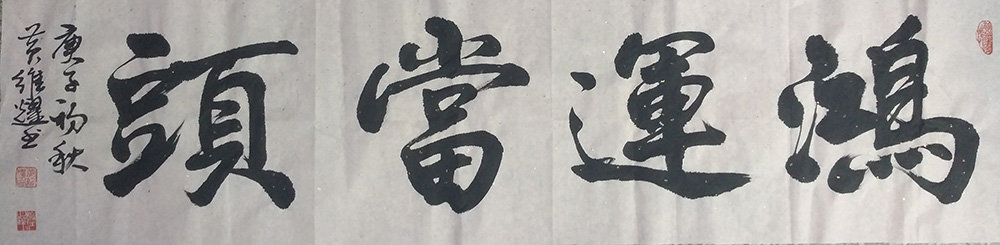 鴻運當頭
庚子初秋
黄維耀书